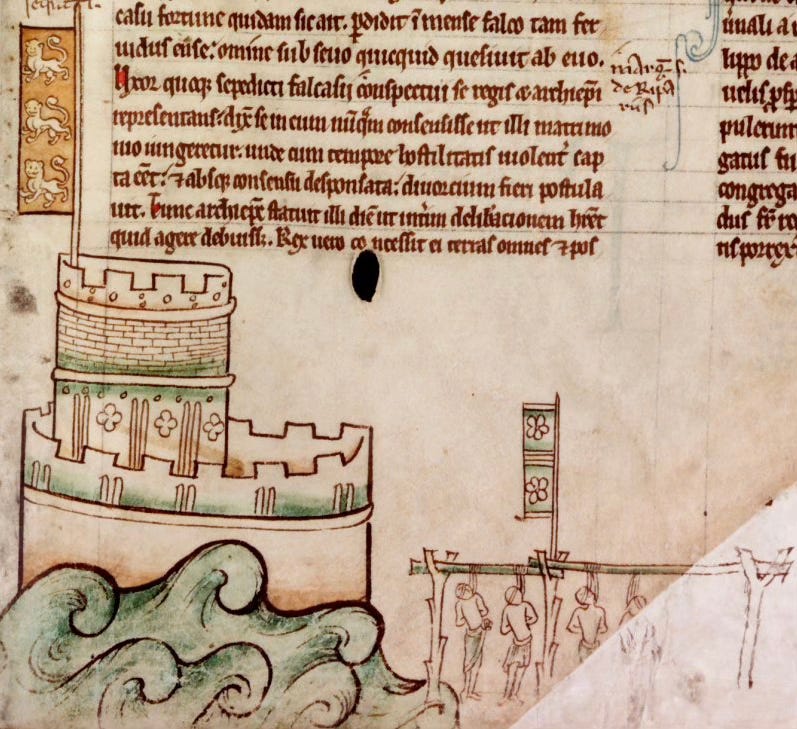 casu fortune quidam sic ait. ꝑdidit ĩ mense falco tam fer
uidus ense: omine sub seuo quicquid quesiuit ab euo.
Uxor quoqꝫ sepedicti falcasii cõspectui se regis ⁊ archiepĩ
representans: dix̃ se in eum nũq̃m consensisse ut illi matrimo
nio iungeretur. unde cum tempore hostilitatis uiolent̃ cap
ta eẽt: ⁊ absqꝫ consensu desponsata: diuorcium fieri postula
uit. Tunc archiepc̃ statuit illi diẽ ut int̃im delib̃acionem hr̃et
quid agere debuiss;. Rex uero co ncessit ei terras omnes ⁊ pos
marg̃ s.
de Ripa
riis
inali a
lippo de a
uelis ꝓsp
pulerunt
gatus fu
congrega
dus fr̃